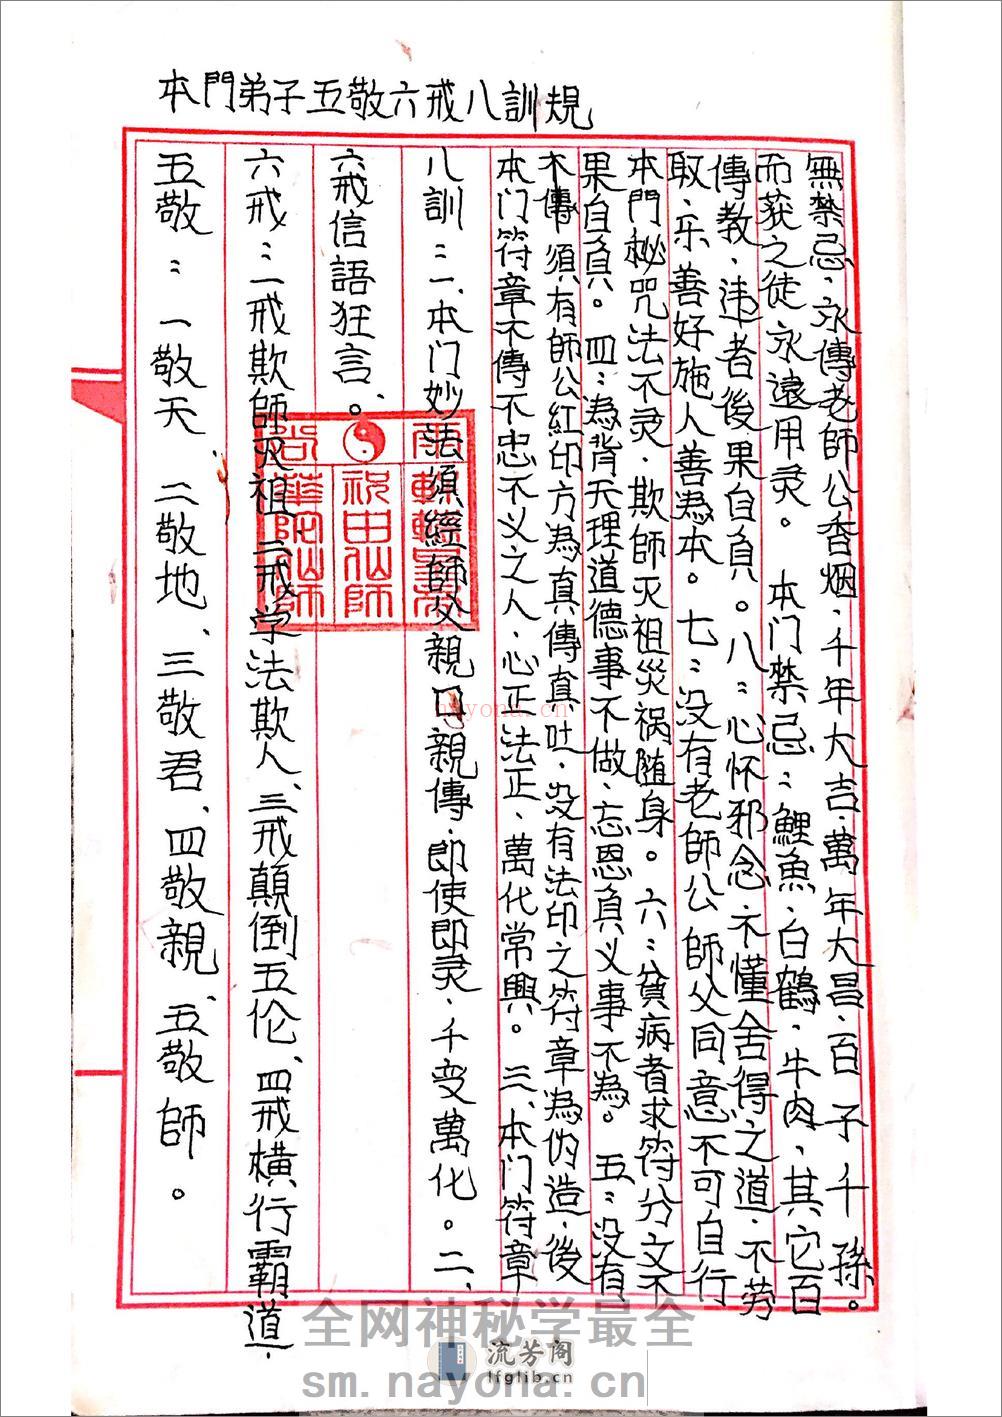 本門弟子五敬六戒八訓規
五敬：一敬天 二敬地、三敬君、四敬親、五敬師。
六戒：一戒欺師灭祖、二戒学法欺人、三戒顛倒五伦、四戒横行霸道，
六戒信語狂言。
八訓：一、本门妙法須經師父親口親傳，即使即灵，千变萬化。二、
本门符章不傳不忠不义之人，心正法正、萬代常興。三、本门符章
不傳須有師公紅印方為真傳真吐，没有法印之符章為伪造，後
果自負。四：為背天理道德事不做，忘恩負义事不為。五：没有
本門秘咒法不灵，欺師灭祖災祸随身。六：貧病者求符分文不
取，乐善好施人善為本。七：没有老師公師父同意不可自行
傳教，违者後果自負。八：心怀邪念，不懂舍得之道，不劳
而获之徒永遠用灵。 本门禁忌：鯉魚、白鶴、牛肉、其它百
無禁忌，永傳老師公香烟，千年大吉，萬年大昌，百子千孫。
祝由仙師
nayona.cn
全网神秘学最全
流芳阁
lfglib.cn
sm.nayona.cn